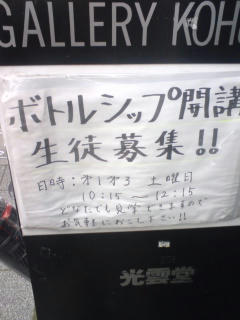 GALLERY KOH
ボトルシップ開講
生徒募集!!
日時:才1才3 土曜日
10:15〜12:15
どなたでも見学できますので
お気軽におこし下さい!!
光雲堂